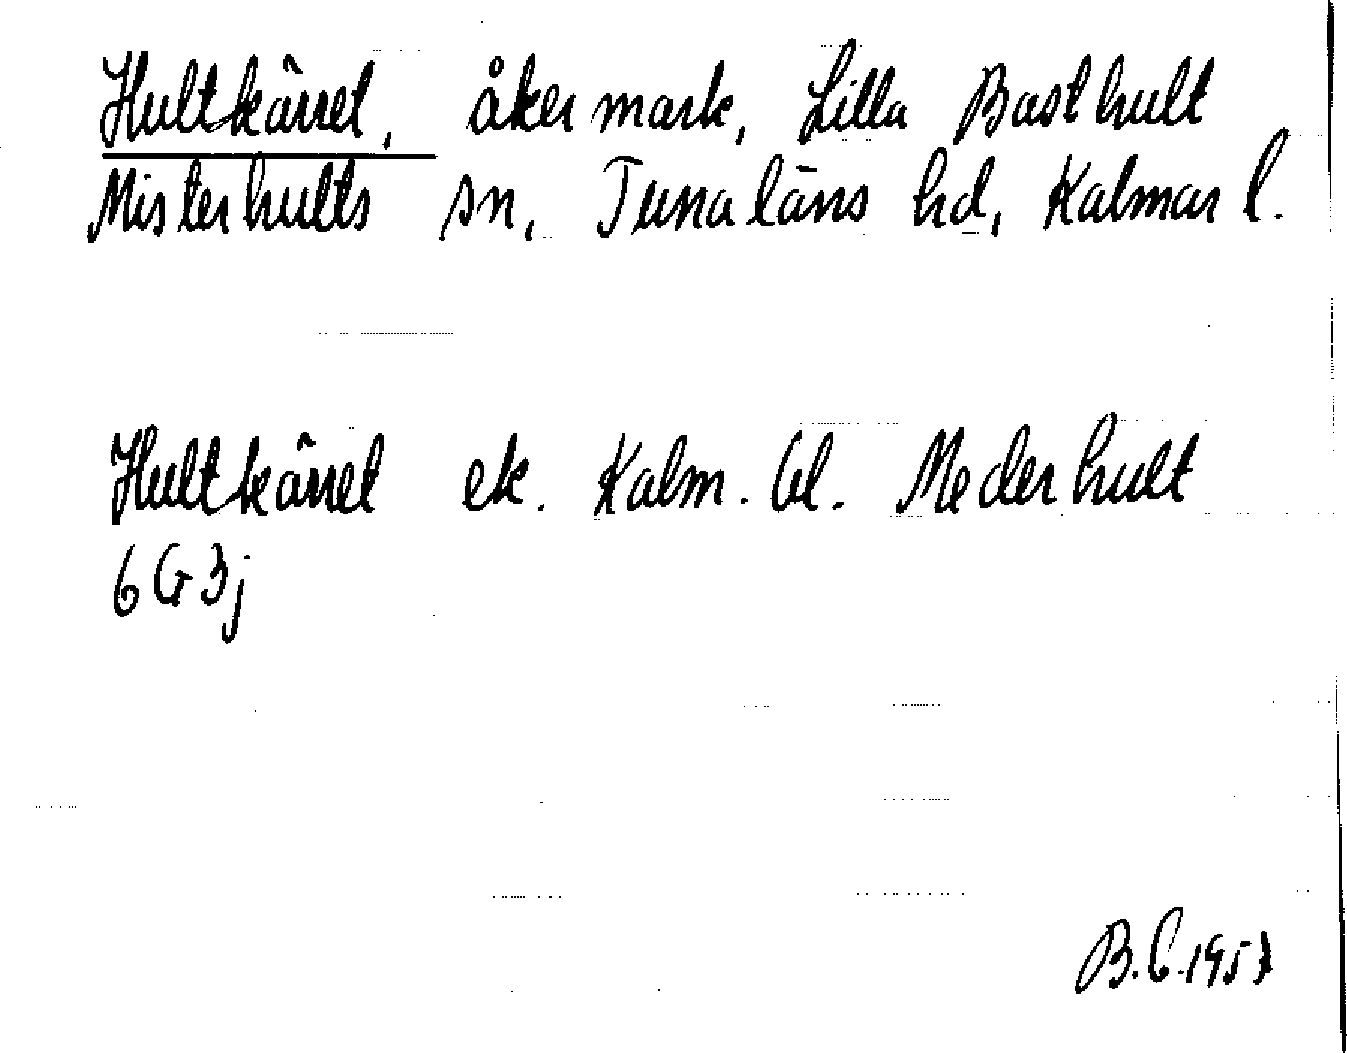 Hultkärret, åkermark, Lilla Basthult
Misterhults sn, Tunaläns hd, Kalmar l.
Hultkärret ek. Kalm. bl. Mederhult
6G3j
B.C.